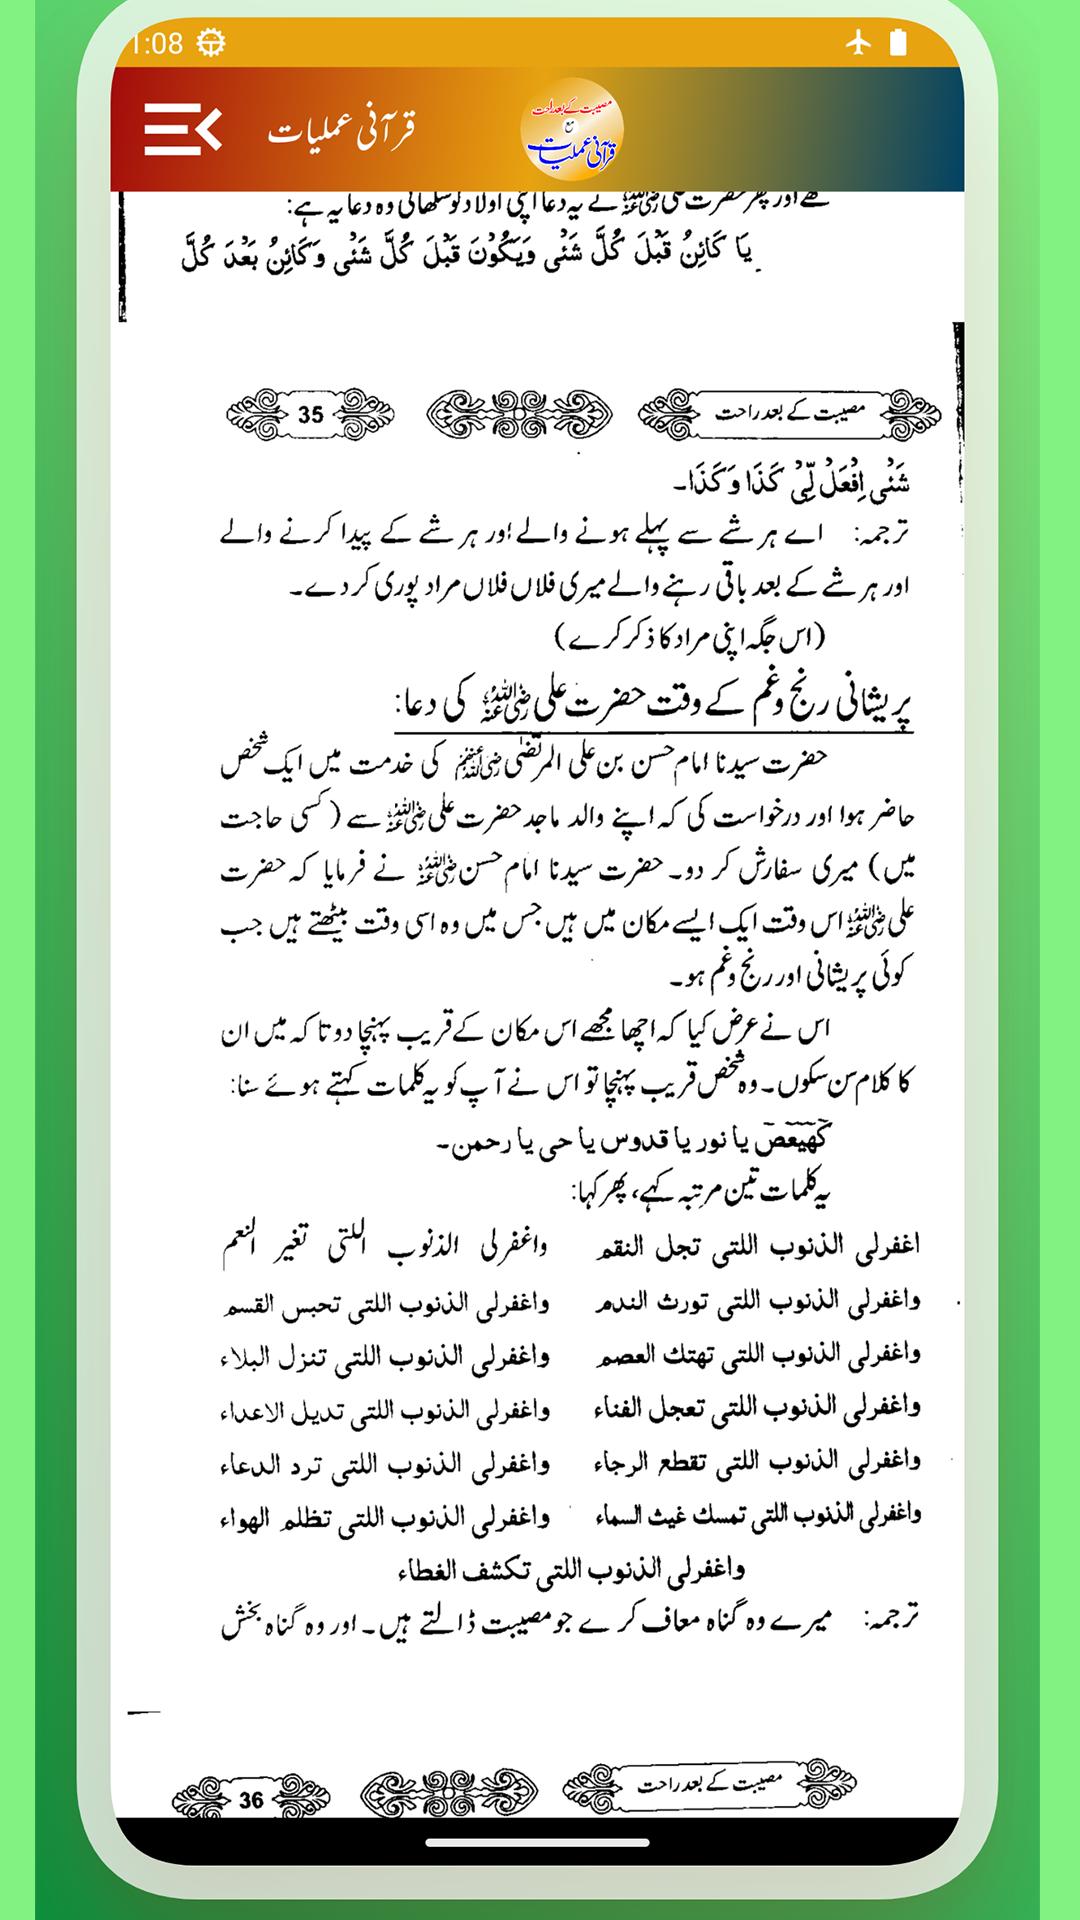 1:08
قرآنی عملیات
مصیبت کے بعد راحت
مع
قرآنی عملیات
تھے اور پھر حضرت علی رضی اللہ عنہ نے یہ دعا اپنی اولاد کو سکھائی وہ دعا یہ ہے:
یَا کَائِنُ قَبْلَ کُلَّ شَئْی وَیَکُوْنَ قَبْلَ کُلَّ شَئْی وَکَائِنُ بَعْدَ کُلَّ
مصیبت کے بعد راحت 35
شَئْی اِفْعَلْ لِّیْ کَذَا وَکَذَا۔
ترجمہ: اے ہر شے سے پہلے ہونے والے اور ہر شے کے پیدا کرنے والے
اور ہر شے کے بعد باقی رہنے والے میری فلاں فلاں مراد پوری کر دے۔
(اس جگہ اپنی مراد کا ذکر کرے)
پریشانی رنج وغم کے وقت حضرت علی رضی اللہ عنہ کی دعا:
حضرت سیدنا امام حسن بن علی المرتضٰی رضی اللہ عنہم کی خدمت میں ایک شخص
حاضر ہوا اور درخواست کی کہ اپنے والد ماجد حضرت علی رضی اللہ عنہ سے (کسی حاجت
میں) میری سفارش کر دو۔ حضرت سیدنا امام حسن رضی اللہ عنہ نے فرمایا کہ حضرت
علی رضی اللہ عنہ اس وقت ایک ایسے مکان میں ہیں جس میں وہ اسی وقت بیٹھتے ہیں جب
کوئی پریشانی اور رنج وغم ہو۔
اس نے عرض کیا کہ اچھا مجھے اس مکان کے قریب پہنچا دو تا کہ میں ان
کا کلام سن سکوں۔ وہ شخص قریب پہنچا تو اس نے آپ کو یہ کلمات کہتے ہوئے سنا:
کٓھٰیٰعٓصٓ یا نور یا قدوس یا حی یا رحمن۔
یہ کلمات تین مرتبہ کہے، پھر کہا:
اغفرلی الذنوب اللتی تجل النقم واغفرلی الذنوب اللتی تغیر النعم
واغفرلی الذنوب اللتی تورث الندم واغفرلی الذنوب اللتی تحبس القسم
واغفرلی الذنوب اللتی تھتك العصم واغفرلی الذنوب اللتی تنزل البلاء
واغفرلی الذنوب اللتی تعجل الفناء واغفرلی الذنوب اللتی تدیل الاعداء
واغفرلی الذنوب اللتی تقطع الرجاء واغفرلی الذنوب اللتی ترد الدعاء
واغفرلی الذنوب اللتی تمسك غیث السماء واغفرلی الذنوب اللتی تظلم الھواء
واغفرلی الذنوب اللتی تکشف الغطاء
ترجمہ: میرے وہ گناہ معاف کر ے جو مصیبت ڈالتے ہیں۔ اور وہ گناہ بخش
مصیبت کے بعد راحت 36